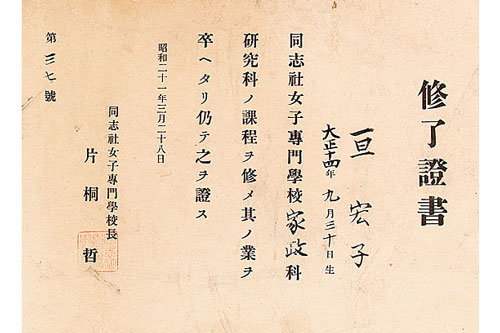 修了證書
亘 宏子
大正十四年九月三十日生
同志社女子專門學校家政科
研究科ノ課程ヲ修メ其ノ業ヲ
卒ヘタリ仍テ之ヲ證ス
昭和二十一年三月二十八日
同志社女子專門學校長
片桐 哲
第三七號